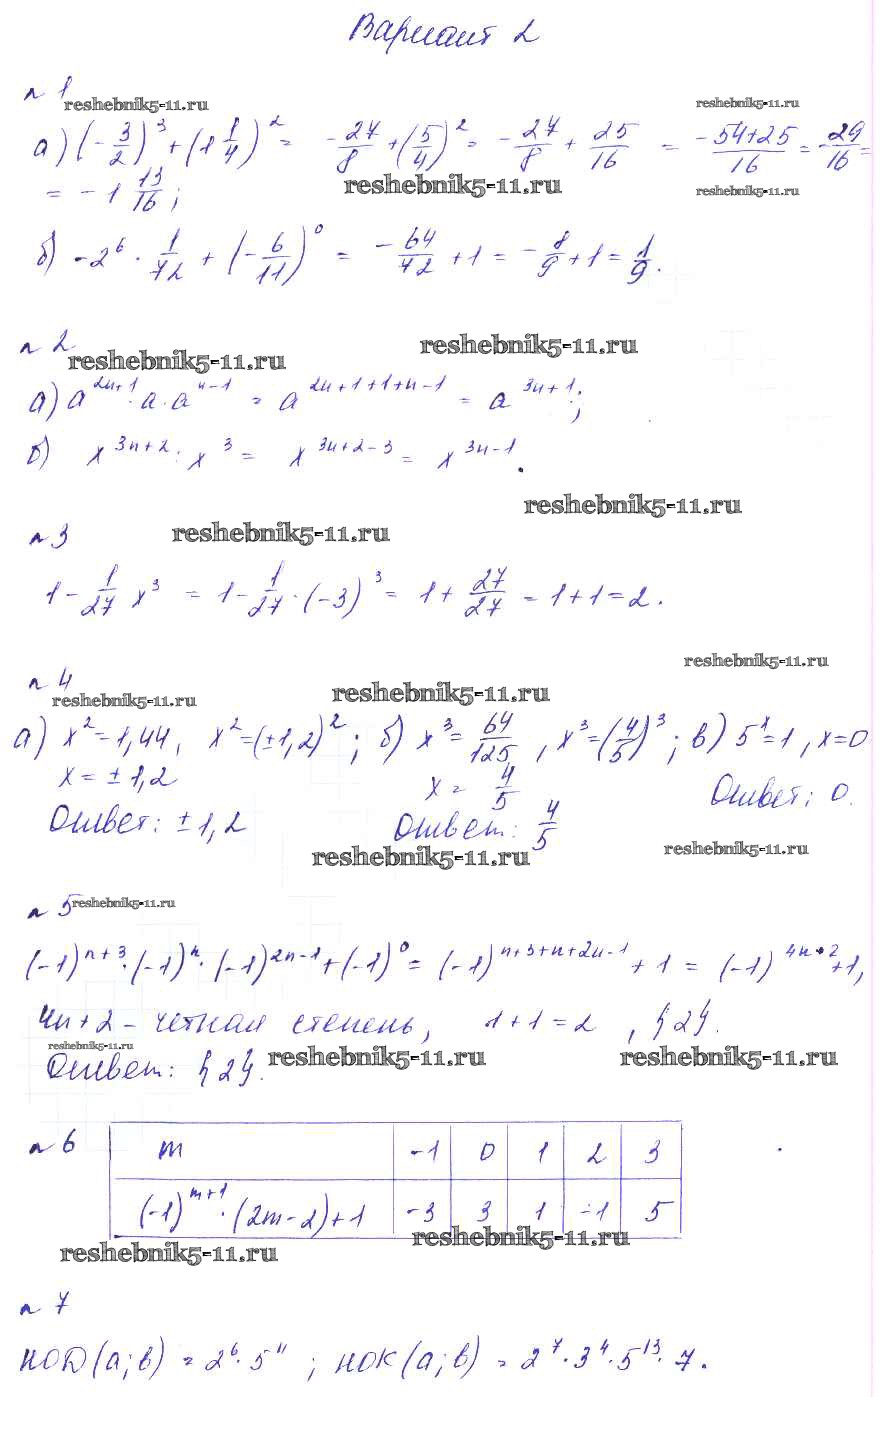 Вариант 2
№ 1
reshebnik5-11.ru reshebnik5-11.ru
а) (-3/2)^3 + (1 1/4)^2 = -27/8 + (5/4)^2 = -27/8 + 25/16 = (-54+25)/16 = -29/16 =
reshebnik5-11.ru reshebnik5-11.ru
= -1 13/16;
б) -2^6 · 1/72 + (-6/11)^0 = -64/72 + 1 = -8/9 + 1 = 1/9.
№ 2
reshebnik5-11.ru reshebnik5-11.ru
а) a^(2n+1) · a · a^(n-1) = a^(2n+1+1+n-1) = a^(3n+1);
б) x^(3n+2) : x^3 = x^(3n+2-3) = x^(3n-1).
reshebnik5-11.ru
№ 3 reshebnik5-11.ru
1 - 1/27 x^3 = 1 - 1/27 · (-3)^3 = 1 + 27/27 = 1+1=2.
reshebnik5-11.ru
№ 4
reshebnik5-11.ru reshebnik5-11.ru
а) x^2=1,44, x^2=(±1,2)^2; б) x^3=64/125, x^3=(4/5)^3; в) 5^x=1, x=0
x=±1,2 x=4/5 Ответ: 0.
Ответ: ±1,2 Ответ: 4/5
reshebnik5-11.ru reshebnik5-11.ru
№ 5 reshebnik5-11.ru
(-1)^(n+3) · (-1)^n · (-1)^(2n-1) + (-1)^0 = (-1)^(n+3+n+2n-1) + 1 = (-1)^(4n+2) + 1,
4n+2 - четная степень, 1+1=2, {2}.
reshebnik5-11.ru reshebnik5-11.ru reshebnik5-11.ru
Ответ: {2}.
№ 6 m -1 0 1 2 3
(-1)^(m+1) · (2m-2)+1 -3 3 1 -1 5
reshebnik5-11.ru reshebnik5-11.ru
№ 7
НОД (a; b) = 2^6 · 5^11; НОК (a; b) = 2^7 · 3^4 · 5^13 · 7.